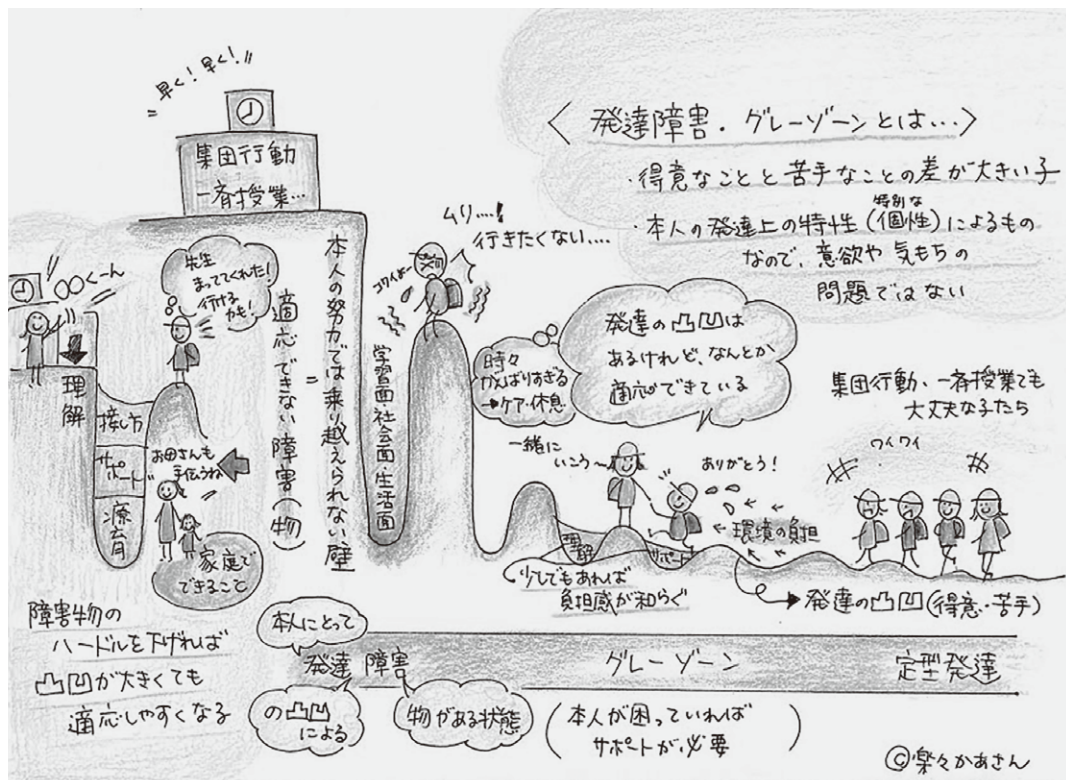 〃早く！早く！〃
集団行動
一斉授業…
〈発達障害・グレーゾーンとは…〉
・得意なことと苦手なことの差が大きい子
・本人の発達上の特性(特別な個性)によるもの
なので、意欲や気もちの
問題ではない
ムリ……！
行きたくない……
コワイよー
○○くーん
先生
まっててくれた！
行ける
かも！
理解
接し方
サポート
療育
お母さんも
手伝うね
家庭で
できること
適応できない障害(物)
＝
本人の努力では乗り越えられない壁
学習面・社会面・生活面
時々
がんばりすぎる
→ケア・休息
発達の凸凹は
あるけれど、なんとか
適応できている
一緒に
いこう〜
ありがとう！
集団行動、一斉授業でも
大丈夫な子たち
ワイワイ
環境の負担
理解
サポート
少しでもあれば
負担感が和らぐ
発達の凸凹(得意・苦手)
障害物の
ハードルを下げれば
凸凹が大きくても
適応しやすくなる
本人にとって
発達障害
グレーゾーン
定型発達
の凸凹
による
物がある状態
(本人が困っていれば
サポートが必要)
©楽々かあさん